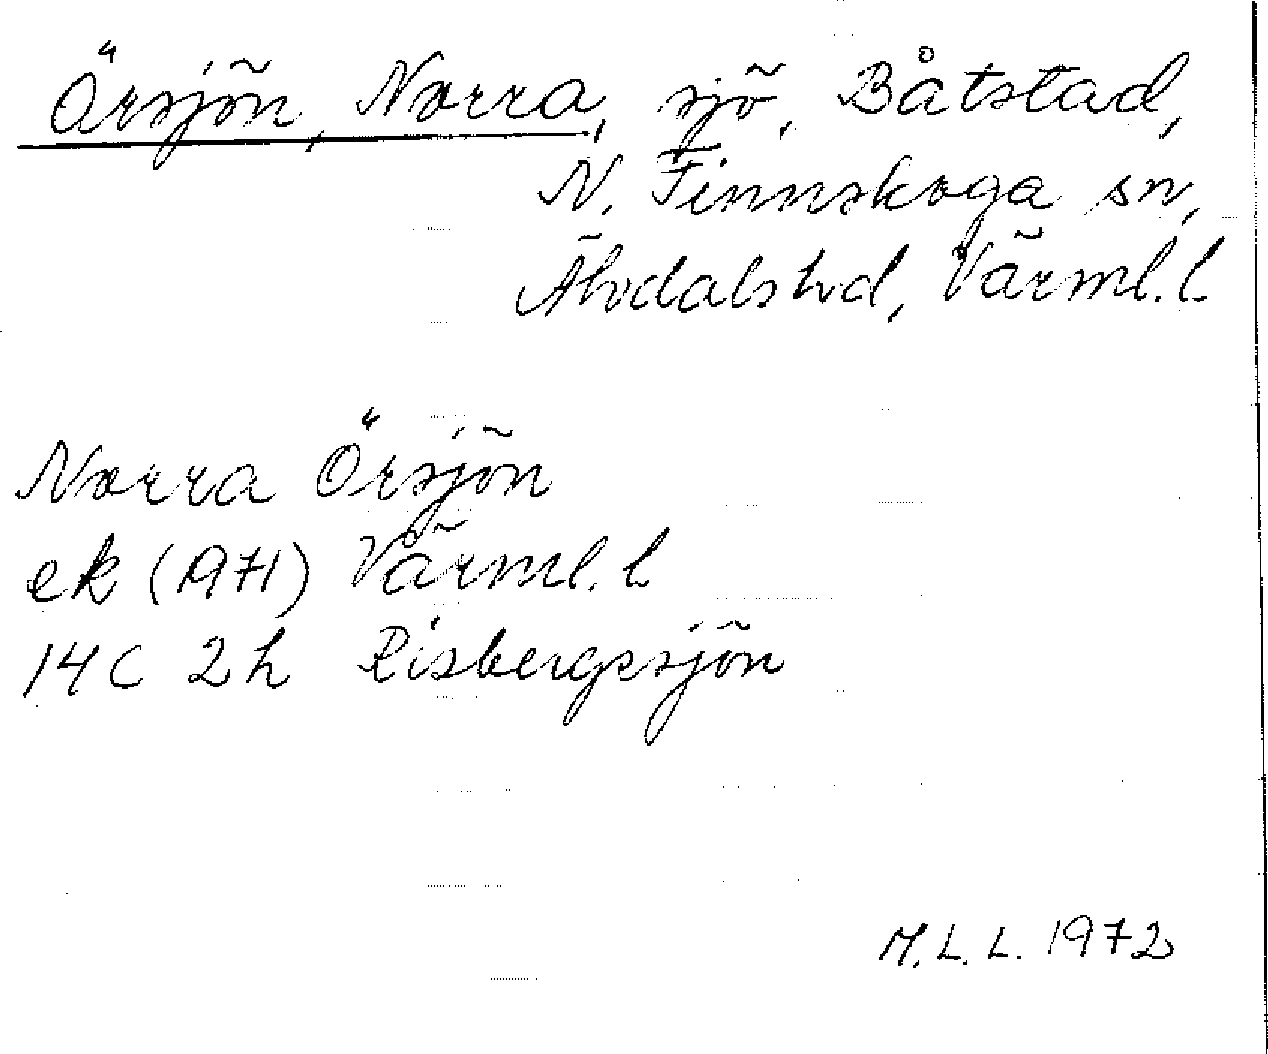 Örsjön, Norra, sjö, Båtstad,
N. Finnskoga sn,
Älvdals hd, Värml. l.
Norra Örsjön
ek (1971) Värml. l.
14 C 2 h Risbergssjön
M. L. L. 1972